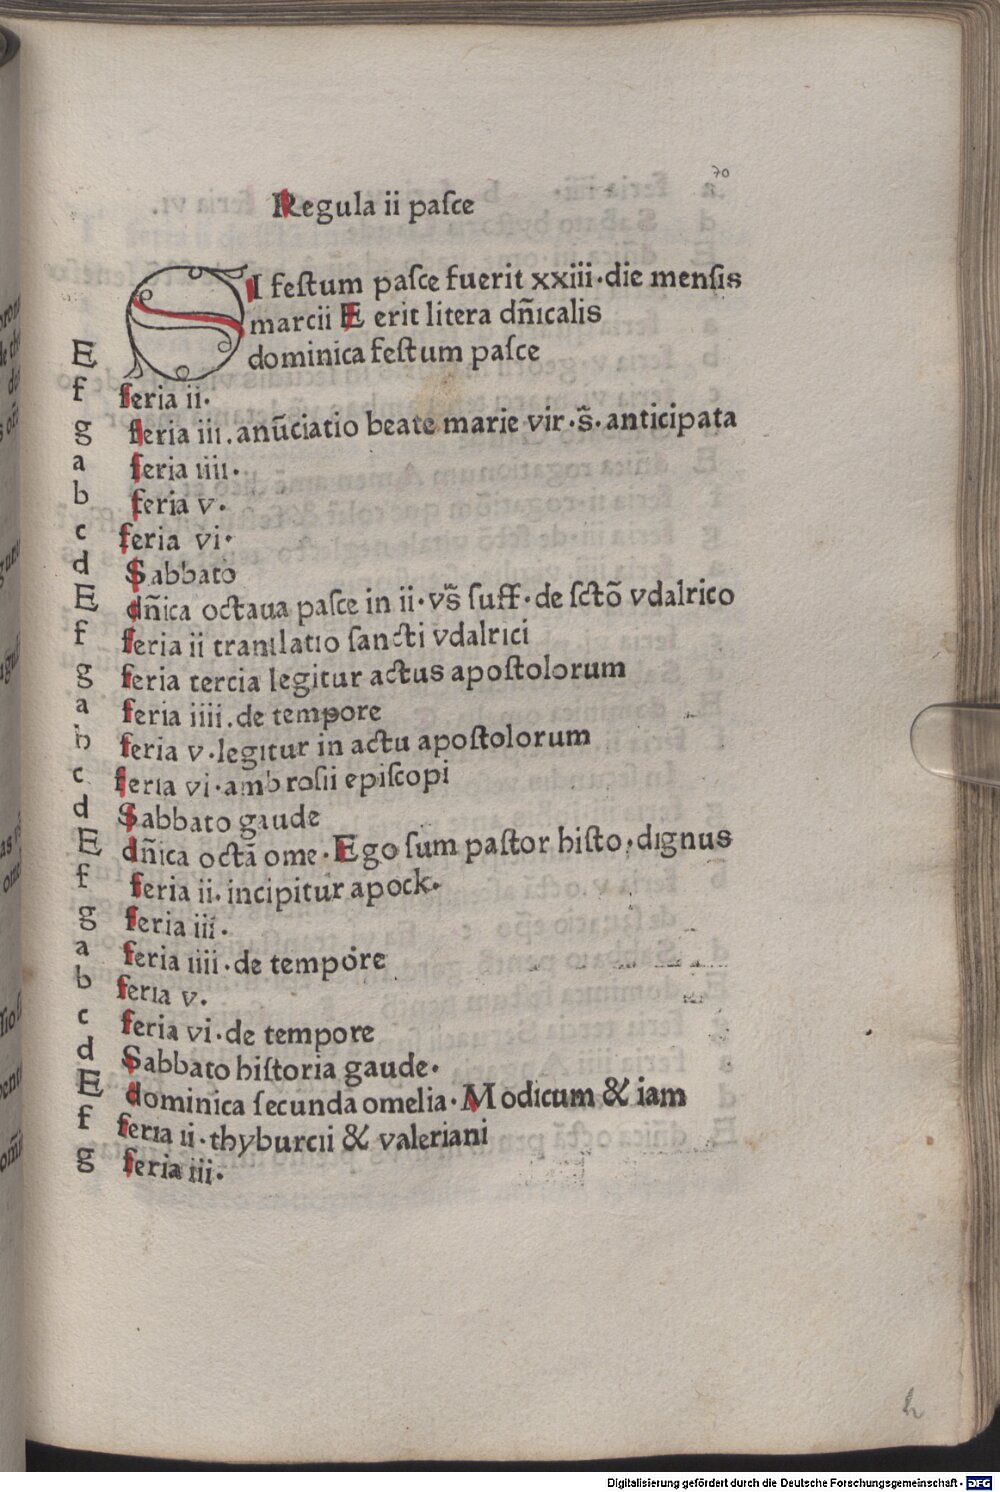 70
Regula ii paſce
SI feſtum paſce fuerit xxiii·die menſis
marcii E erit litera dn̄icalis
E dominica feſtum paſce
f feria ii·
g feria iii.anūciatio beate marie vir·s̄·anticipata
a feria iiii·
b feria v·
c feria vi·
d Sabbato
E dn̄ica octaua paſce in ii·vs̄ ſuff·de ſctō vdalrico
f feria ii tranſlatio ſancti vdalrici
g feria tercia legitur actus apoſtolorum
a feria iiii.de tempore
b feria v·legitur in actu apoſtolorum
c feria vi·ambroſii epiſcopi
d Sabbato gaude
E dn̄ica octā ome·Ego ſum paſtor hiſto·dignus
f feria ii·incipitur apock·
g feria iii·
a feria iiii·de tempore
b feria v·
c feria vi·de tempore
d Sabbato hiſtoria gaude·
E dominica ſecunda omelia·Modicum & iam
f feria ii·thyburcii & valeriani
g feria iii·
h
Digitalisierung gefördert durch die Deutsche Forschungsgemeinschaft - DFG